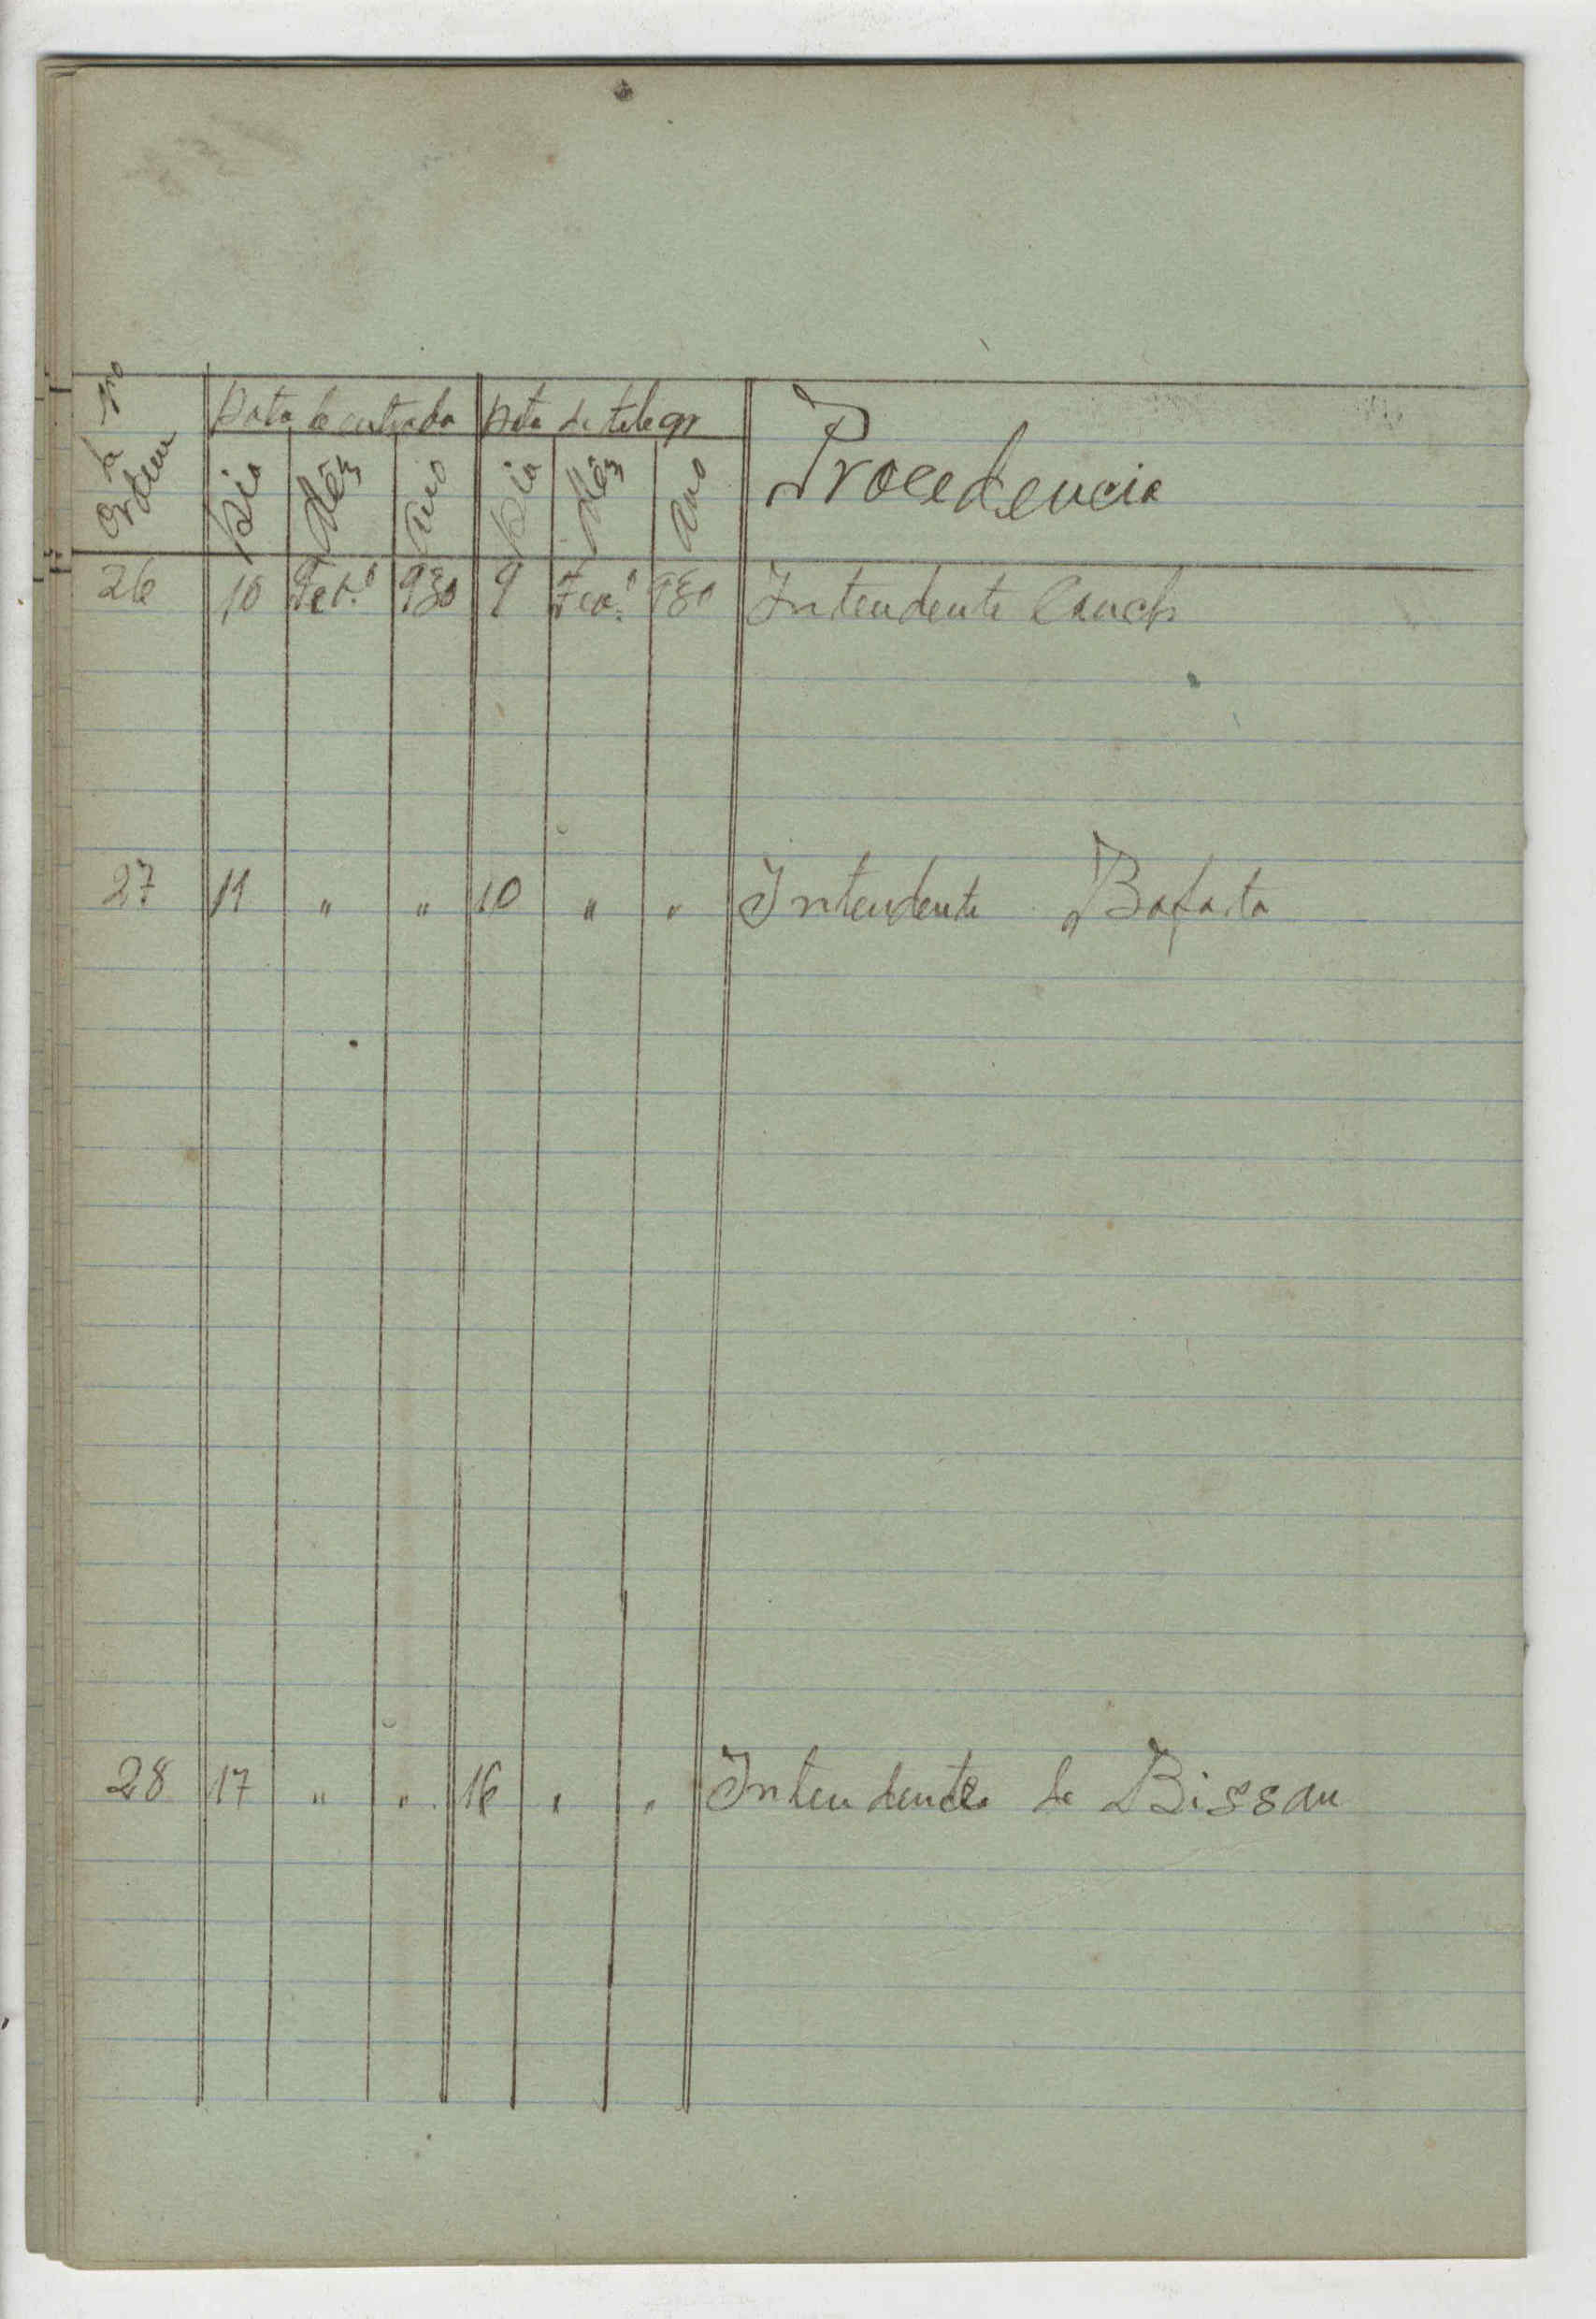 Nro de Ordem Data de entrada Data de telegr Procedencia
Dia Mês Ano Dia Mês Ano
26 10 Fev.º 930 9 Fev.º 930 Intendente Canch
27 11 " " 10 " " Intendente Bafata
28 17 " " 16 " " Intendente de Bissau